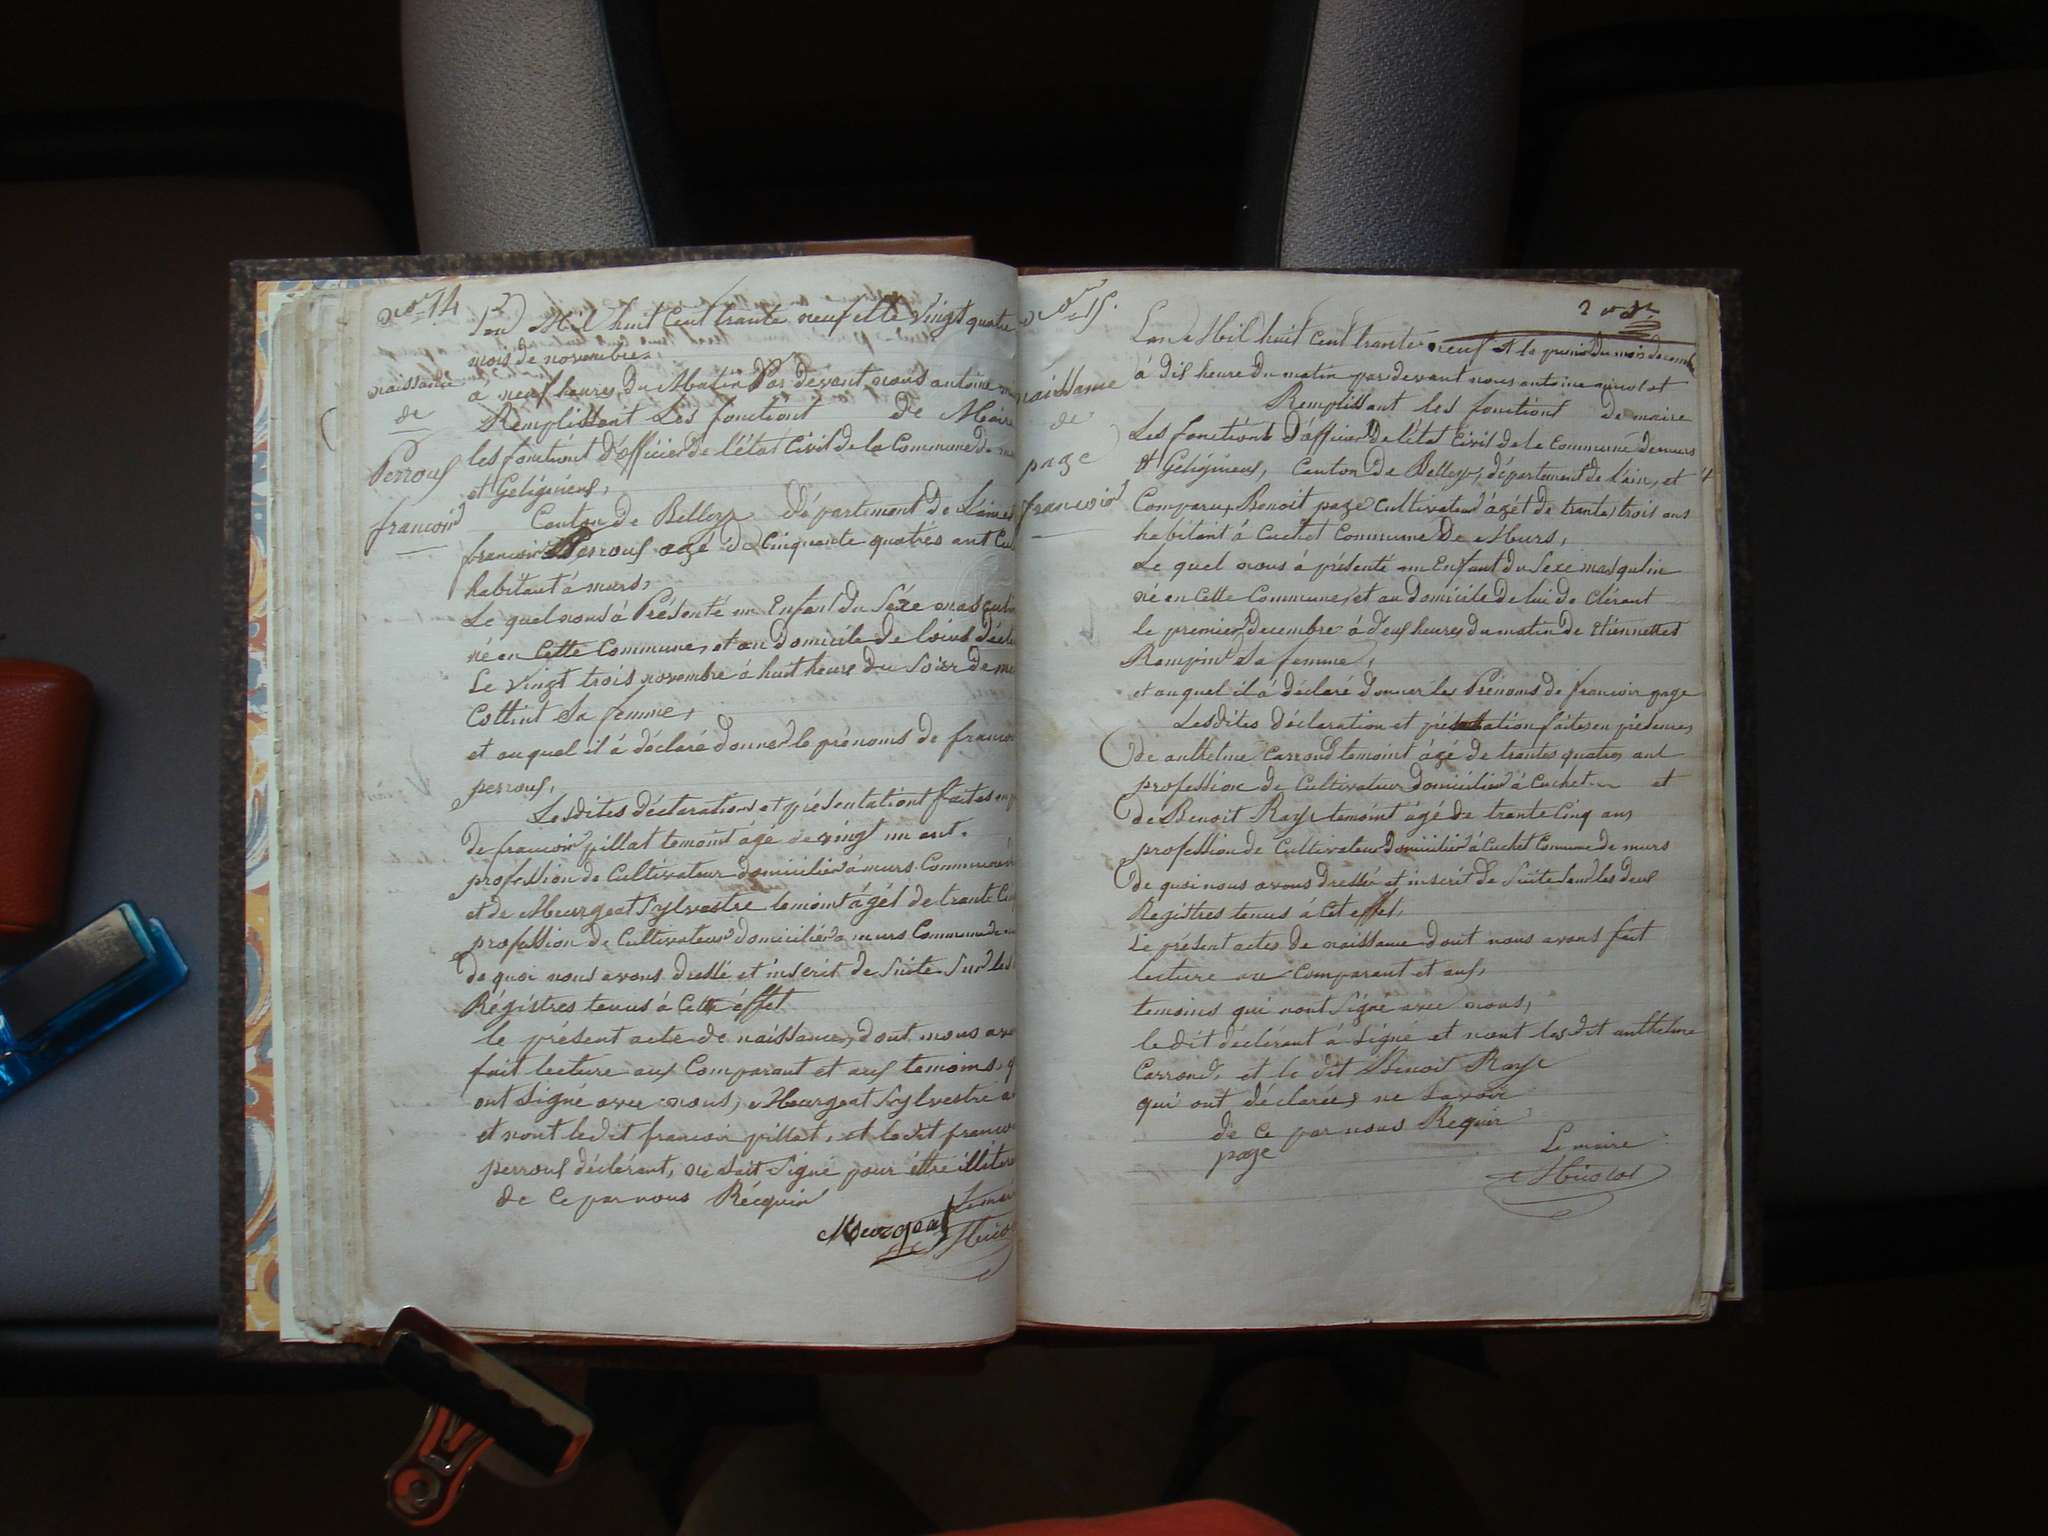 N° 14
naissance
de
Perrous
francois
L'an Mil huit Cent trante neuf et le vingt quatre
mois de novembre,
a neuf heures du Matin Par devant nous antoine
Remplissant Les fonctions de Maire
les fonctiont d'officier de l'état Civil de la Commune de
et Geligneus,
Canton de Belley département de L'ain
francois Perrous agé de Cinquante quatres ant
habitant à murs,
Le quel nous à Présenté un Enfant du Sexe masculin
né en Cette Commune, et au domicile de
Le vingt trois novembre à huit heure du Soir de
Cottint Sa femme,
et au quel il á déclaré donner le prénoms de francois
perrous,
Lesdites déclaration et présentationt faites en
de francois pillat temoint âge de vingt un ant.
profession de Cultivateur domicilier à murs Commune
et de Meurgeat Sylvestre temoint ágét de trante
profession de Cultivateur domicilier à murs Commune de
de quoi nous avons dressé et inscrit de Suite Sur les
Régistres tenus á Cette éffet
le présent acte de naissance, dont nous
fait lecture aus Comparant et aus temoins,
ont Signé avec nous, Meurgeat Sylvestre
et nont ledit francois pillat, et le dit francois
perrous déclérant, ne Sait Signé pour être
de Ce par nous Réequir
Meurgeat
N° 15.
naissance
de
page
francois
L'an Mil huit Cent trante neuf et le premier du mois decembre
á dis heure du matin par devant nous antoine
Remplissant les fonctions de maire
Les fonctions d'officier de l'état Civil de la Commune de murs
et Geligneus, Canton de Belley, département de l'ain, et
Comparu, Benoit page Cultivateur ágét de trante trois ans
habitant á Cuchet Commune De Murs,
Le quel nous á présenté un Enfant du Sexe masqulin
né en Cette Commune, et au domicile de lui de Clérant
le premier decembre á deus heures du matin de Etiennette
Sa femme,
et au quel il á déclaré donner les Prénoms de francoir page
Lesdites déclaration et présentation faites en présence,
de anthelme Carrond temoint ágé de trantes quatres ant
profession de Cultivateur domicilier à Cuchet et
de Benoit Raye temoint ágé de trante Cinq ans
profession de Cultivateur domicilier à Cuchet Comune de murs
de quoi nous avons dressé et inscrit de Suite Sur les deus
Registres tenus á Cet effet,
Le présent actes de naissance dont nous avons fait
lecture au Comparant et aus,
temoins qui nont Signé avec nous,
le dit déclérant á Signé et nont les dit anthelme
Carrond, et le dit Benoit Raye
qui ont déclarées ne Savoir
de Ce par nous Requir
page
Le maire